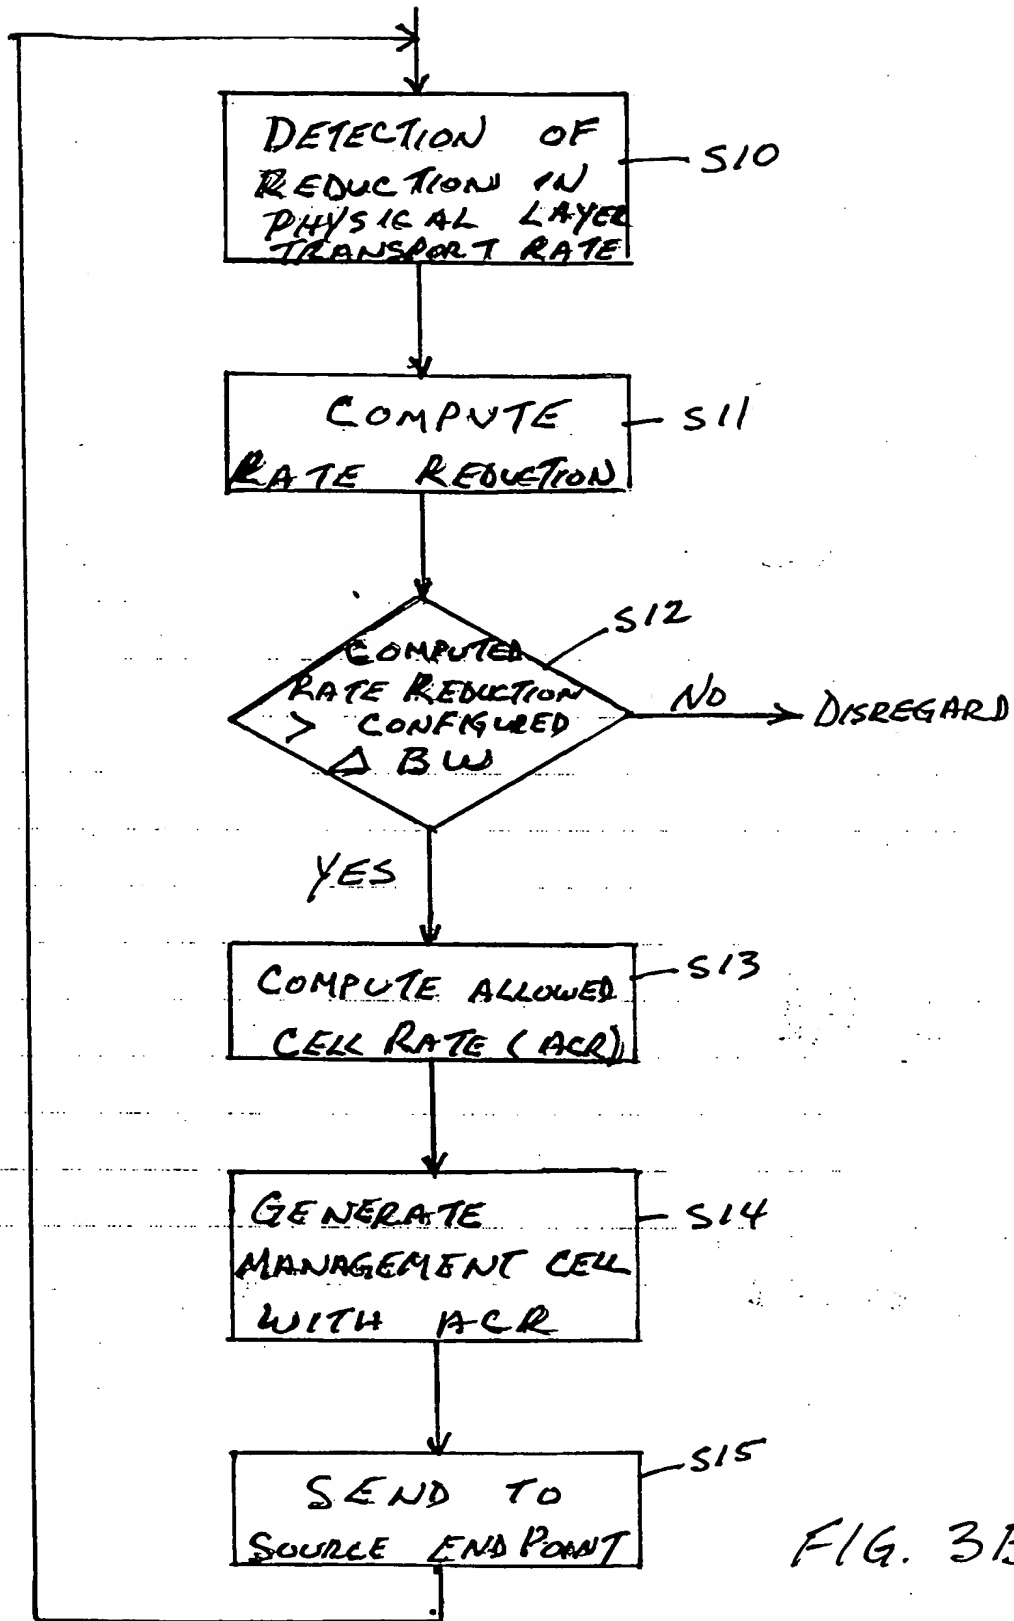 DETECTION OF
REDUCTION IN
PHYSICAL LAYER
TRANSPORT RATE
S10
COMPUTE
RATE REDUCTION
S11
COMPUTED
RATE REDUCTION
> CONFIGURED
Δ BW
S12
NO
DISREGARD
YES
COMPUTE ALLOWED
CELL RATE (ACR)
S13
GENERATE
MANAGEMENT CELL
WITH ACR
S14
SEND TO
SOURCE ENDPOINT
S15
FIG. 3B